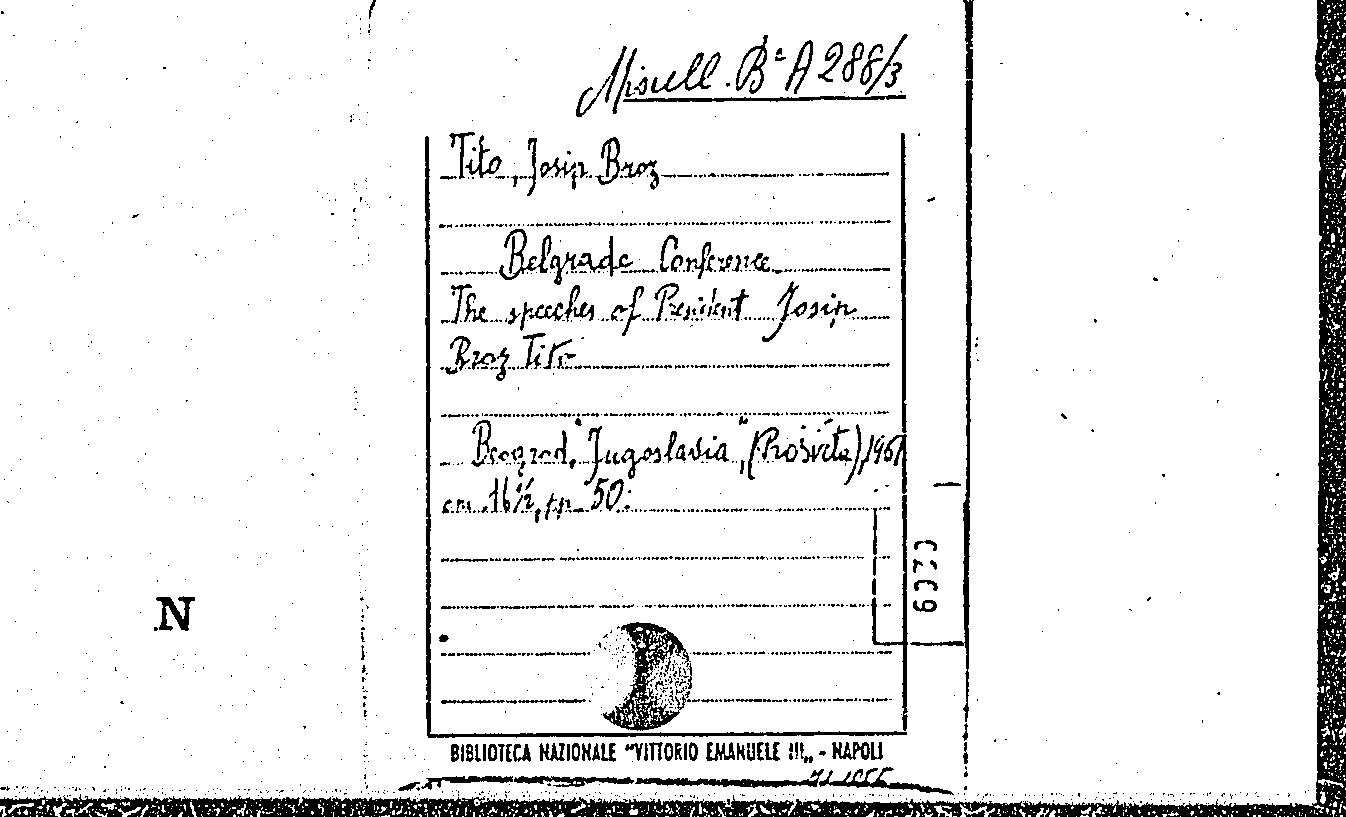 Miscell. Bª A 288/3
Tito, Josip Broz
Belgrade Conference
The speeches of President Josip
Broz Tito
Beograd, "Jugoslavia", (Prosveta), 1961
cm. 16½, pp. 50.
N
BIBLIOTECA NAZIONALE "VITTORIO EMANUELE III„ - NAPOLI